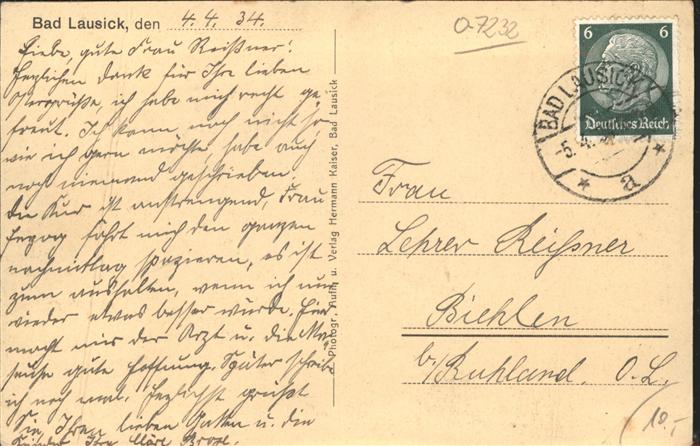 Bad Lausick, den 4. 4. 34.
Liebe, gute Frau Reißner!
Herzlichen Dank für Ihre lieben
Ostergrüße, ich habe mich recht ge-
freut. Ich kann noch nicht so
wie ich gern möchte, habe auch
noch niemand geschrieben.
Die Kur ist anstrengend, Frau
Herzog fährt mich den ganzen
nachmittag spazieren, es ist
zum aushalten, wenn ich nur
wieder etwas besser würde. Hier
macht mir der Arzt u. die
gute Hoffnung. Später schreibe
ich noch mal. Herzlichst grüßt
Sie, Ihren lieben Gatten u. die
Kinder Ihre
Photogr. Aufn. u. Verlag Hermann Kaiser, Bad Lausick
O-7232
6 6
Deutsches Reich
BAD LAUSICK
-5.4.
* a *
Frau
Lehrer Reißner
Biehlen
b/Ruhland. O. L.
10,-